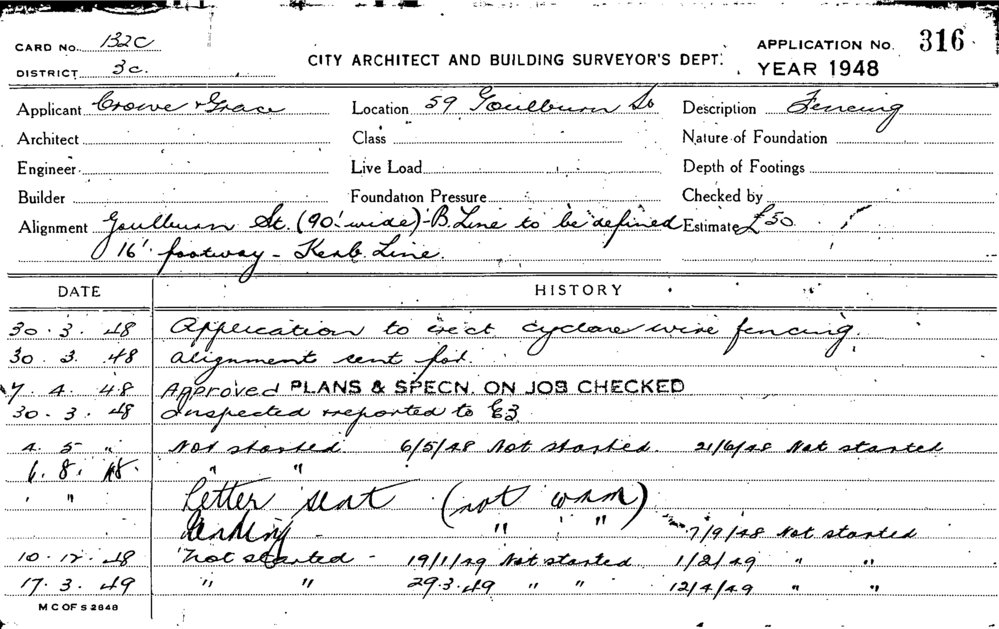 CARD No. 132C
DISTRICT 3c.
CITY ARCHITECT AND BUILDING SURVEYOR'S DEPT.
APPLICATION No. 316
YEAR 1948
Applicant Crowe & Grace Location 59 Goulburn St Description Fencing
Architect Class Nature of Foundation
Engineer Live Load Depth of Footings
Builder Foundation Pressure Checked by
Alignment Goulburn St. (90' wide) - B. Line to be defined Estimate £50
16' footway - Kerb Line.
DATE HISTORY
30. 3. 48 Application to erect cyclone wire fencing.
30. 3. 48 Alignment sent for.
7. 4. 48 Approved PLANS & SPECN. ON JOB CHECKED
30. 3. 48 Inspected & reported to
4. 5 " Not started. 6/5/48 Not started. 21/6/48 Not started
6. 8. 48. " "
" " Letter sent (not
" " 7/9/48 Not started
10. 12. 48 Not started - 19/1/49 Not started. 1/2/49 " "
17. 3. 49 " " 29.3.49 " " 12/4/49 " "
M C OF S 2848